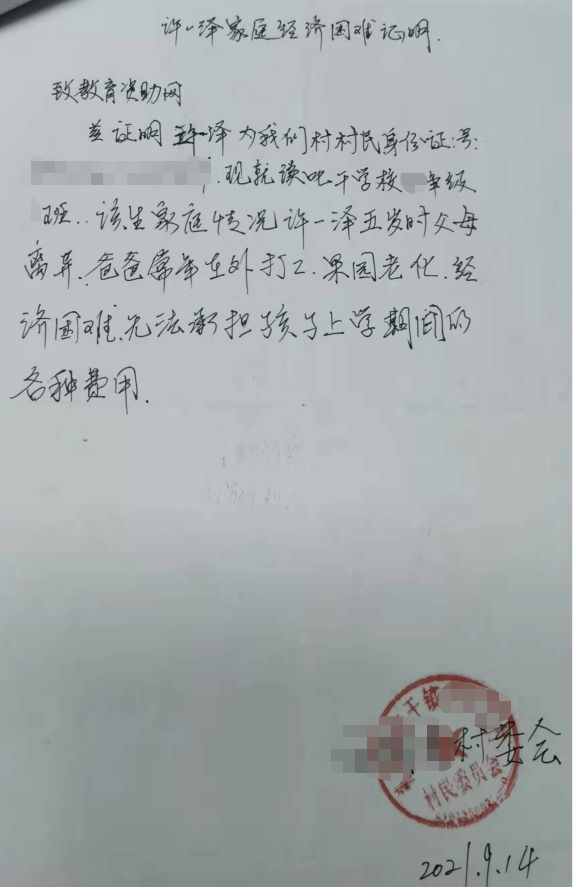 许一泽家庭经济困难证明.
致教育资助网
兹证明许一泽为我们村村民身份证号:
;现就读 干学校 年级
班..该生家庭情况许一泽五岁时父母
离弃.爸爸常年在外打工.果园老化.经
济困难.无法承担孩子上学期间的
各种费用.
干镇
村委会
村民委员会
2021.9.14